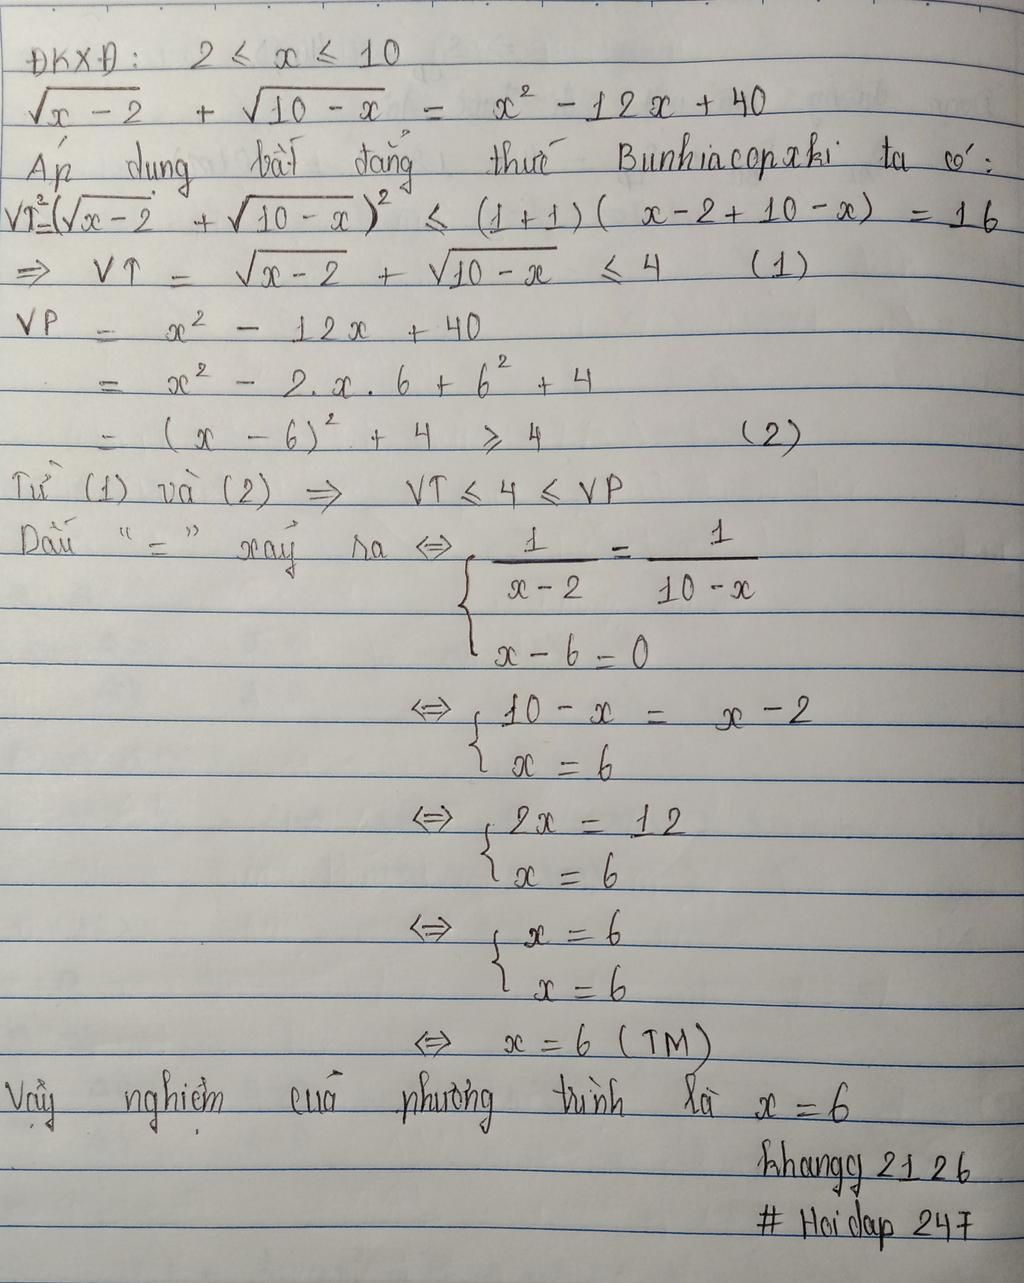 ĐKXĐ: 2 ≤ x ≤ 10
√(x - 2) + √(10 - x) = x² - 12x + 40
Áp dụng bất đẳng thức Bunhiacopxki ta có:
VT² = (√(x - 2) + √(10 - x))² ≤ (1 + 1)(x - 2 + 10 - x) = 16
⇒ VT = √(x - 2) + √(10 - x) ≤ 4 (1)
VP = x² - 12x + 40
= x² - 2.x.6 + 6² + 4
= (x - 6)² + 4 ≥ 4 (2)
Từ (1) và (2) ⇒ VT ≤ 4 ≤ VP
Dấu "=" xảy ra ⇔ { 1/(x - 2) = 1/(10 - x)
x - 6 = 0
⇔ { 10 - x = x - 2
x = 6
⇔ { 2x = 12
x = 6
⇔ { x = 6
x = 6
⇔ x = 6 (TM)
Vậy nghiệm của phương trình là x = 6
khangg 2126
# Hoidap 247